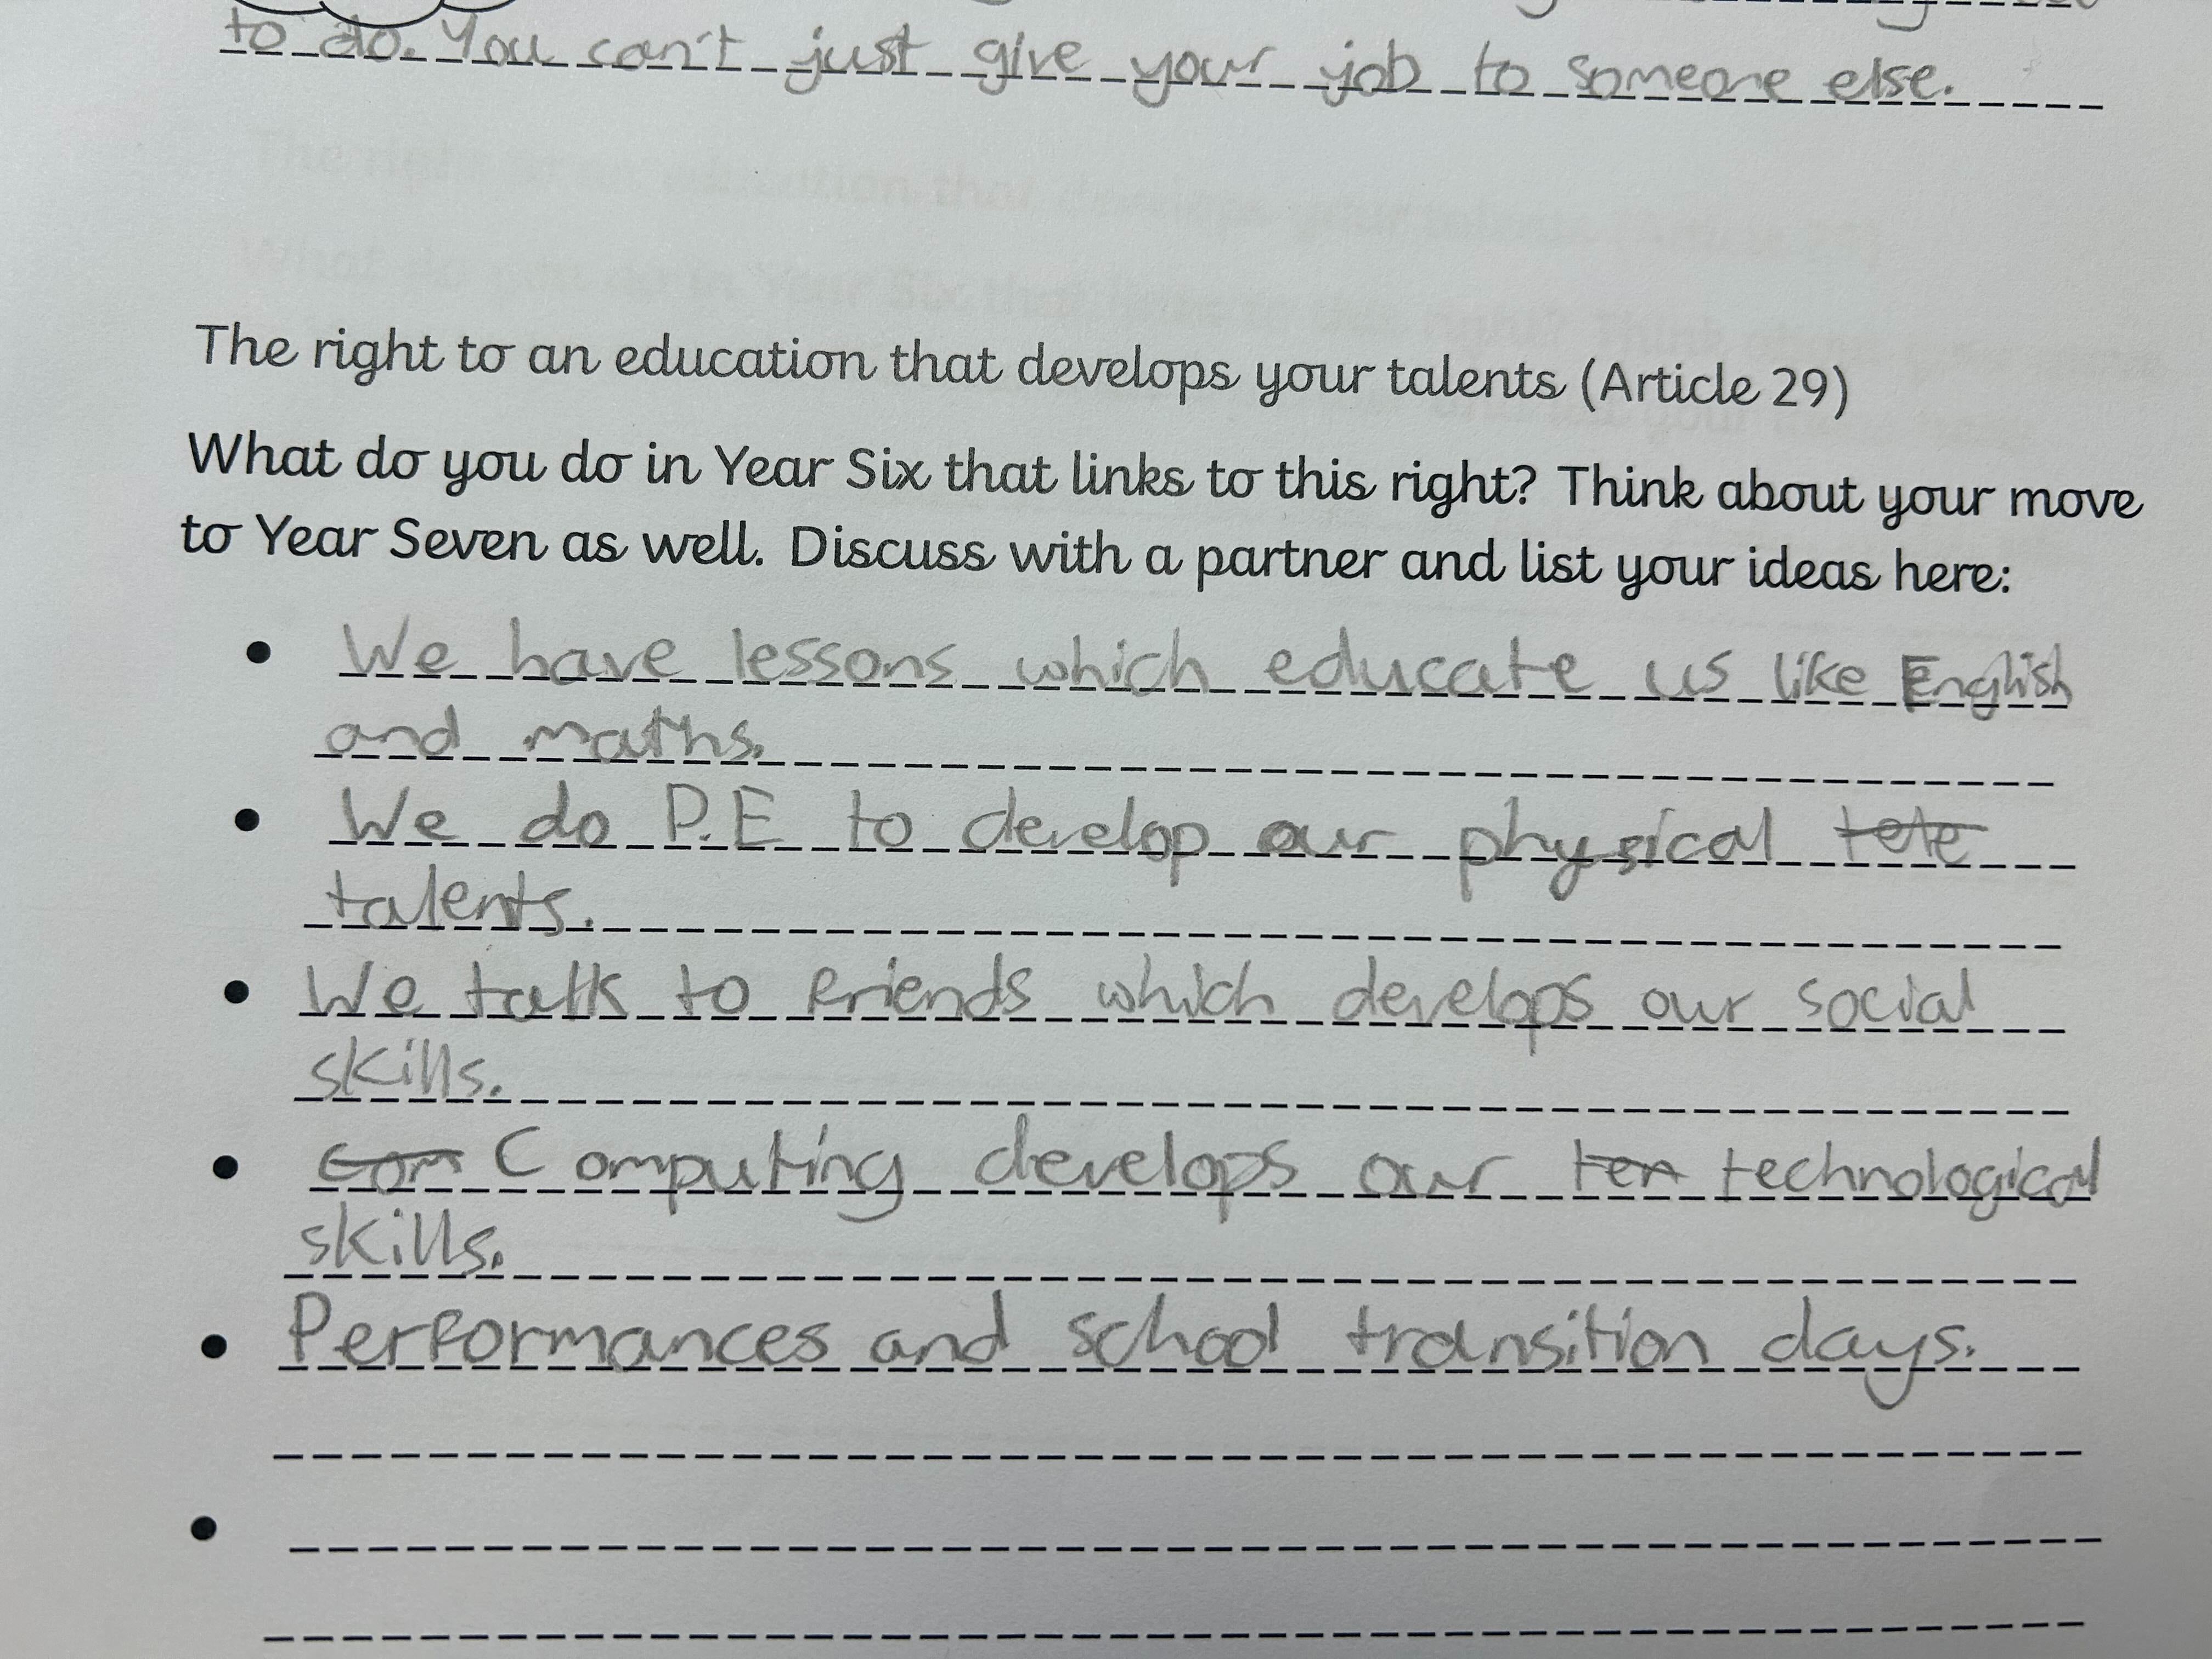 to do. You can't just give your job to someone else.
The right to an education that develops your talents (Article 29)
What do you do in Year Six that links to this right? Think about your move
to Year Seven as well. Discuss with a partner and list your ideas here:
• We have lessons which educate us like English
and maths.
• We do P.E to develop our physical tete
talents.
• We talk to friends which develops our social
skills.
• Com Computing develops our ten technological
skills.
• Performances and school transition days.
•